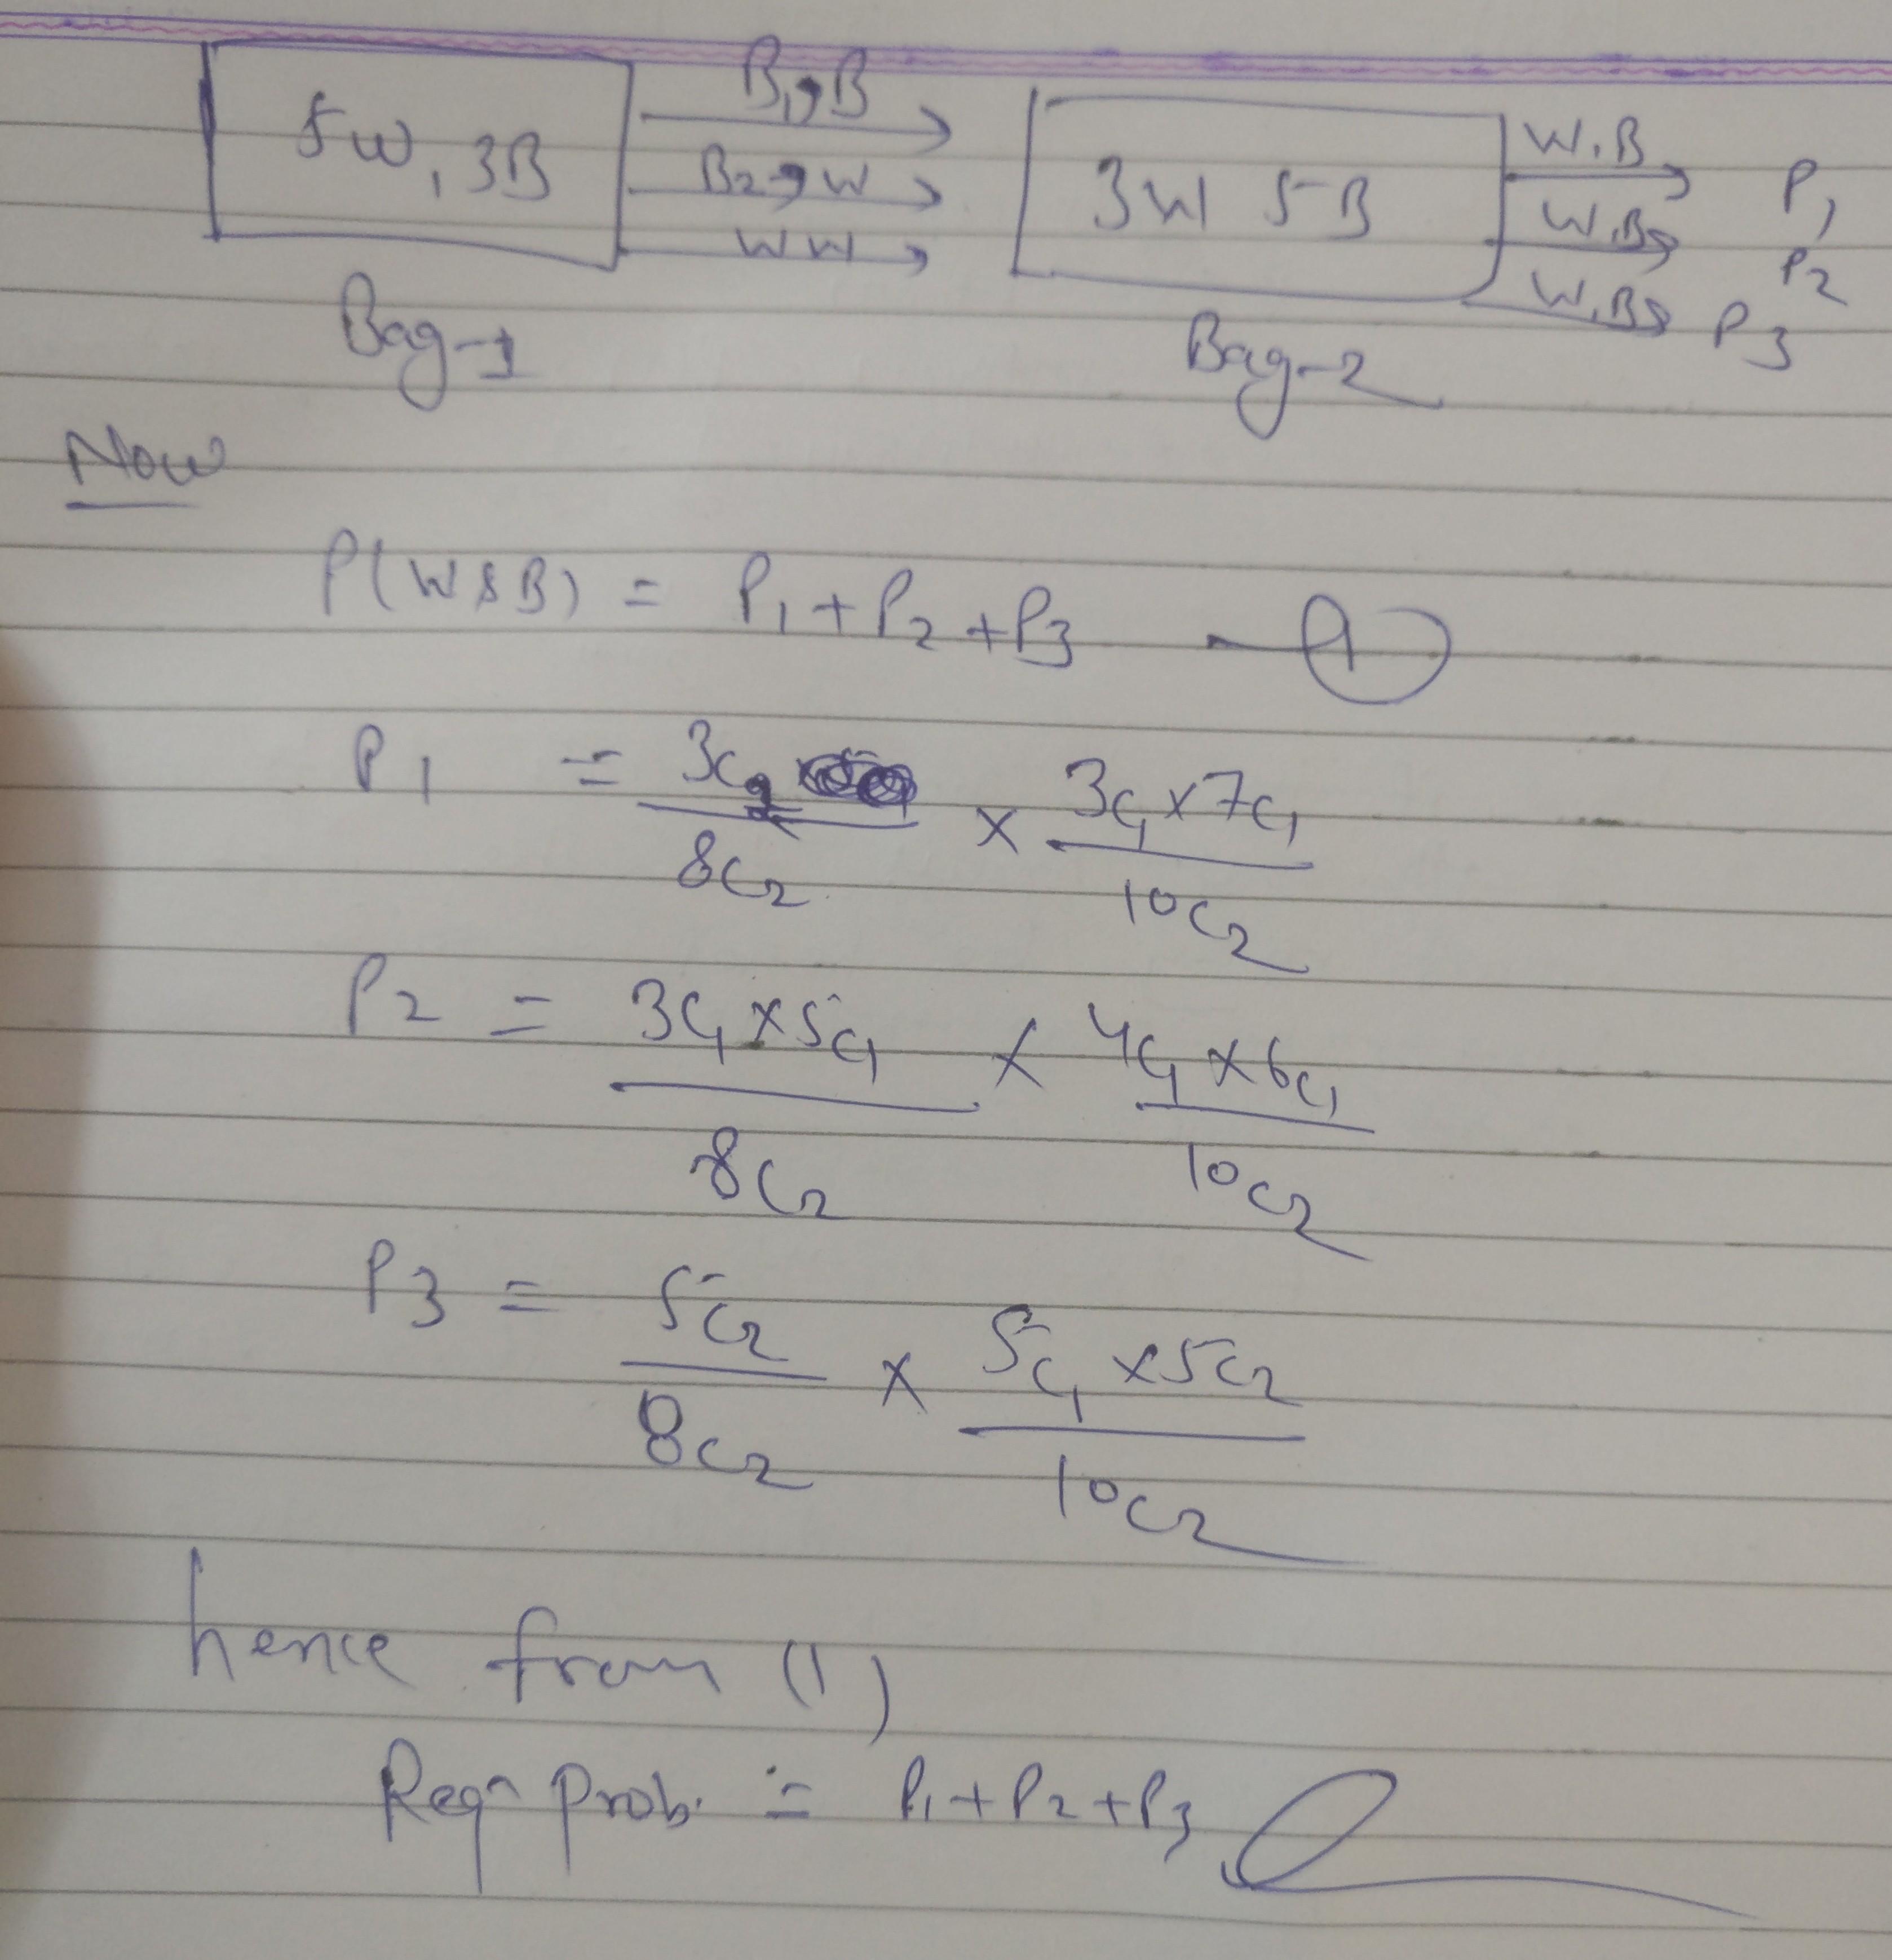 B,B
5W, 3B
B & W
WW
3W 5B
W.B P1
W.B P2
W.B P3
Bag-1
Bag-2
Now
P(W&B) = P1+P2+P3 — 1
P1 = 3c2/8c2 × 3c1×7c1/10c2
P2 = 3c1×5c1/8c2 × 4c1×6c1/10c2
P3 = 5c2/8c2 × 5c1×5c2/10c2
hence from (1)
Reqn Prob. = P1+P2+P3